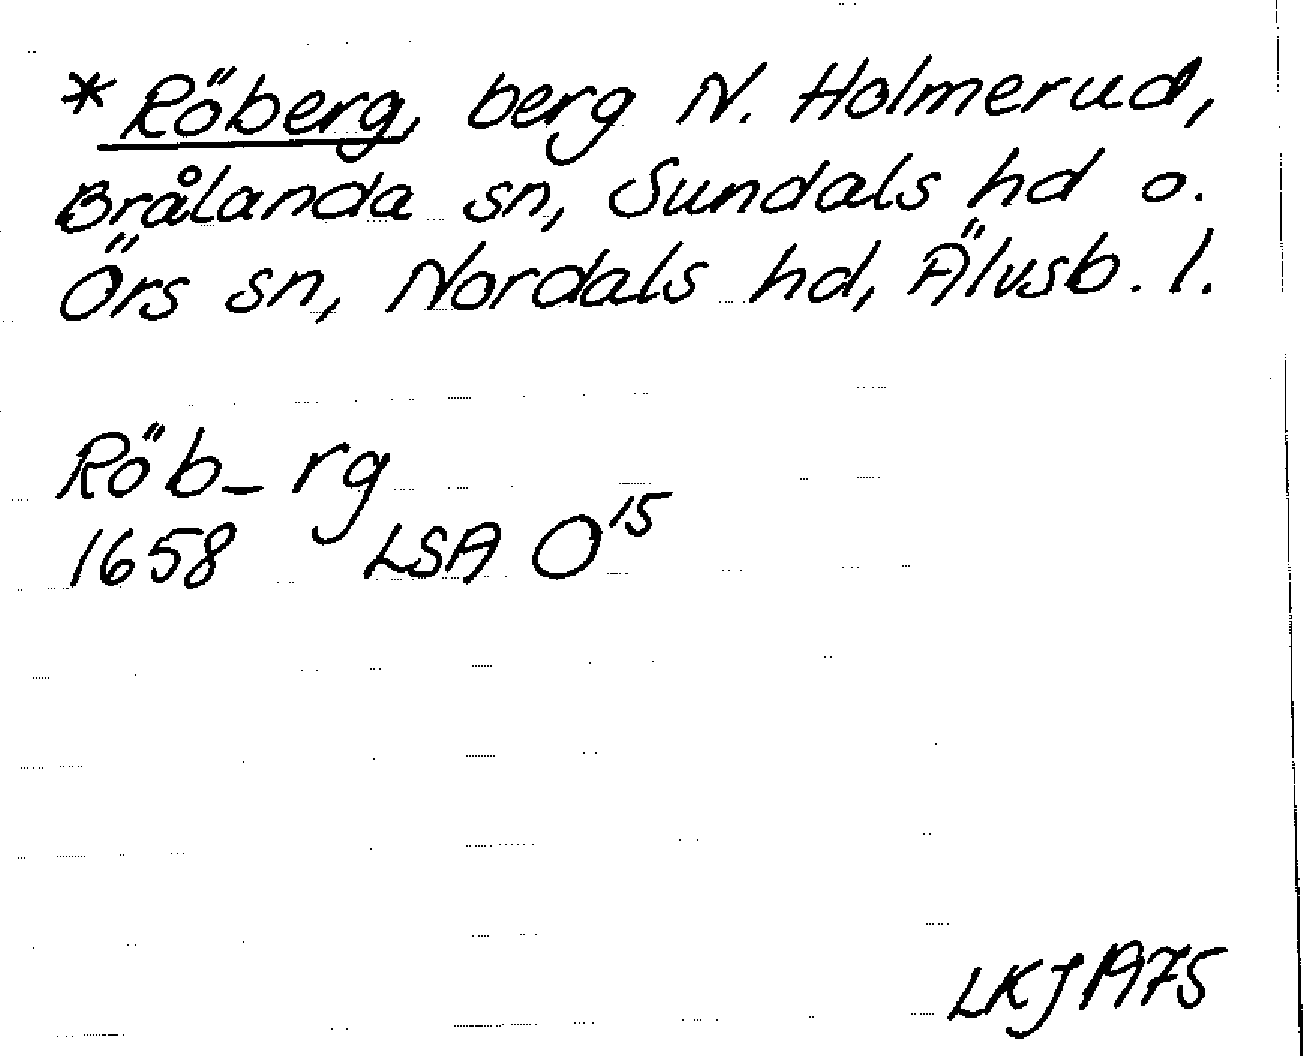 *Röberg, berg N. Holmerud,
Brålanda sn, Sundals hd o.
Örs sn, Nordals hd, Älvsb. l.
Röb_rg
1658 LSA O¹⁵
LKJ 1975